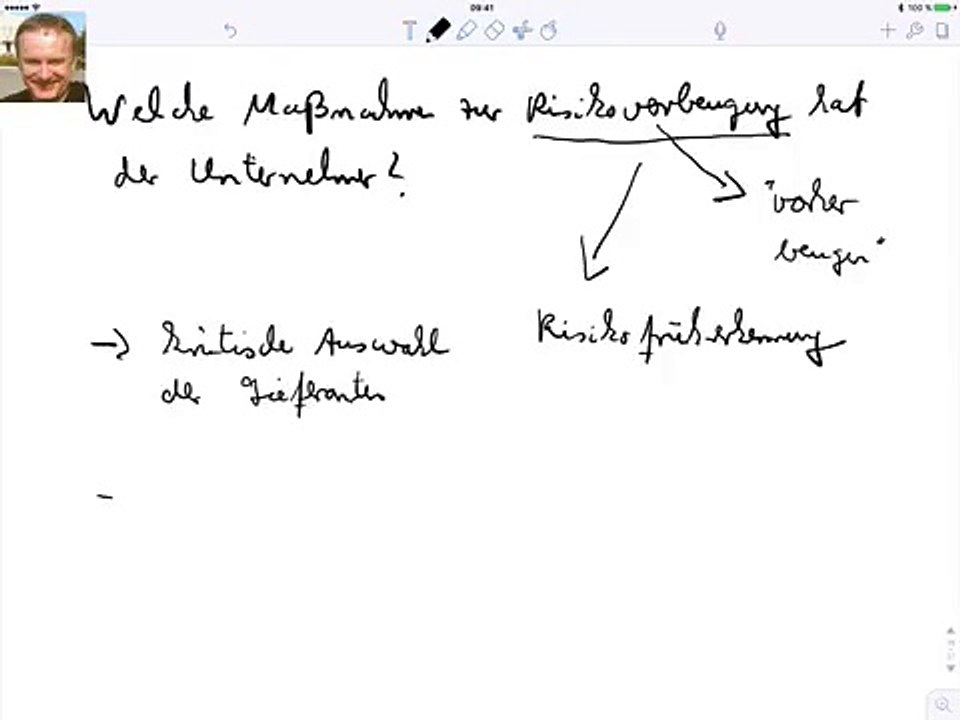 09:41
100 %
T
Welche Maßnahmen zur Risikovorbeugung hat
der Unternehmer?
"vorher
beugen"
→ kritische Auswahl
der Lieferanten
Risikofrüherkennung
-